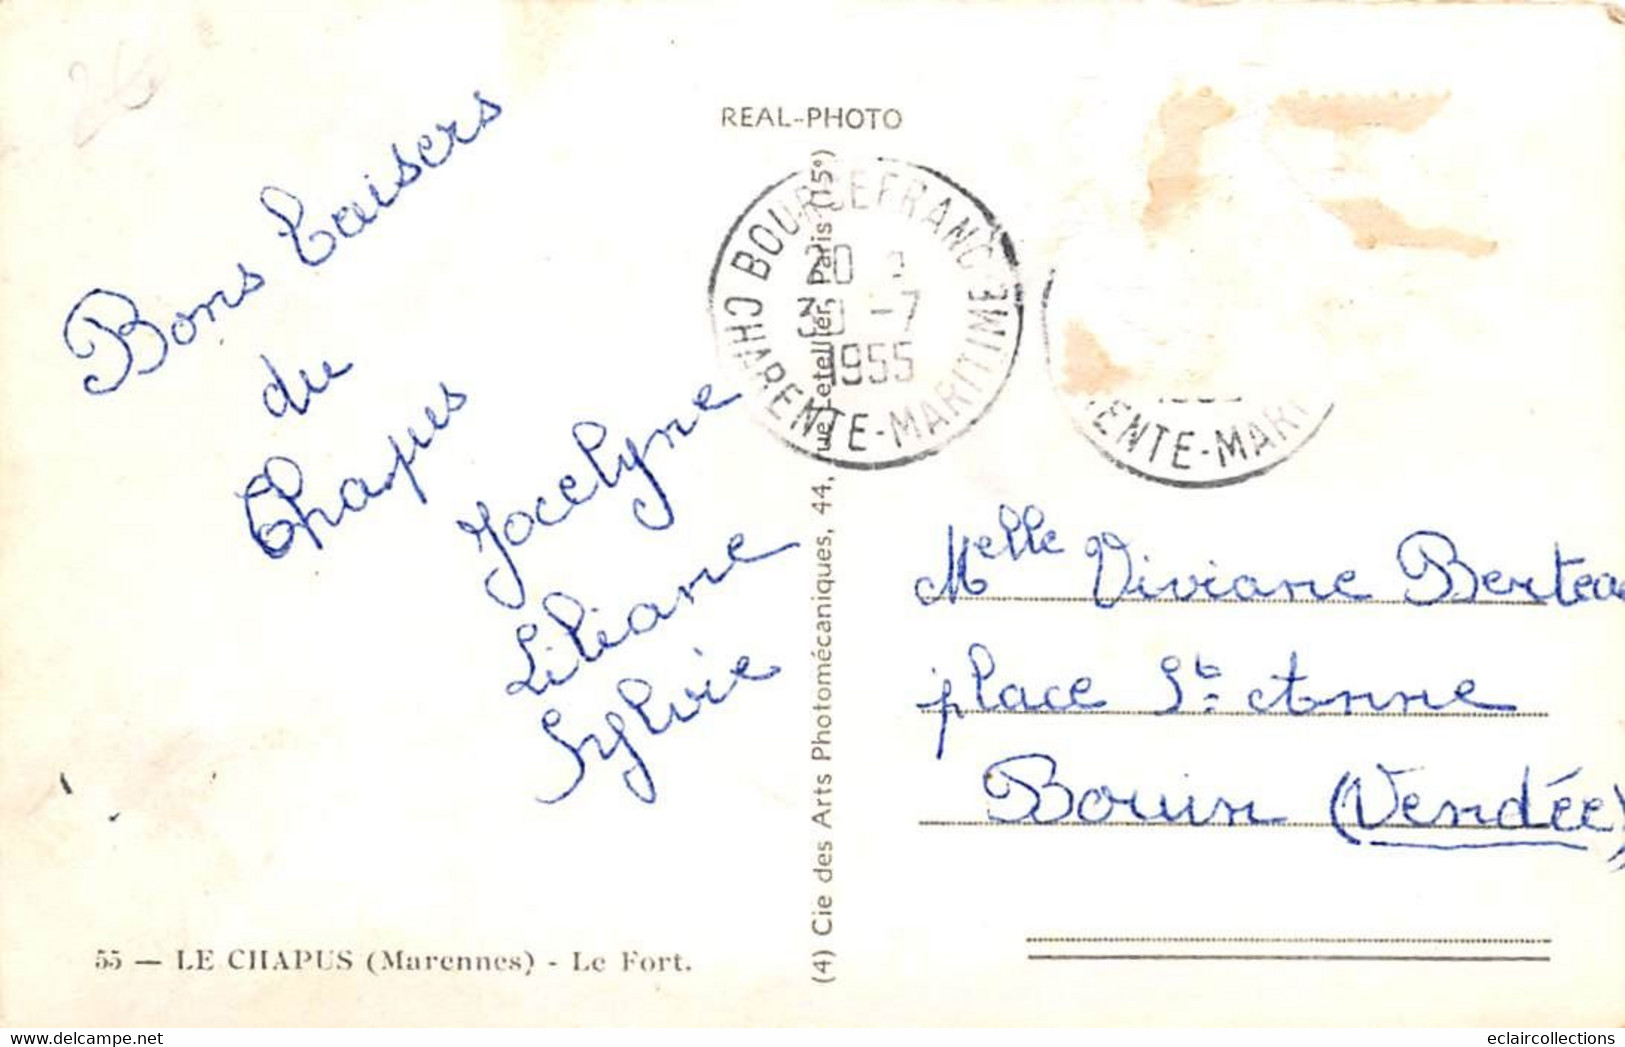 26
REAL-PHOTO
Bons baisers
du
Chapus
Jocelyne
Liliane
Sylvie
BOURCEFRANC
20
30 -7
1955
CHARENTE-MARITIME
ENTE-MARI
Melle Viviane Bertea
place Ste Anne
Bouin (Vendée)
(4) Cie des Arts Photomécaniques, 44, rue Letellier, Paris (15e)
55 — LE CHAPUS (Marennes) - Le Fort.
eclaircollections